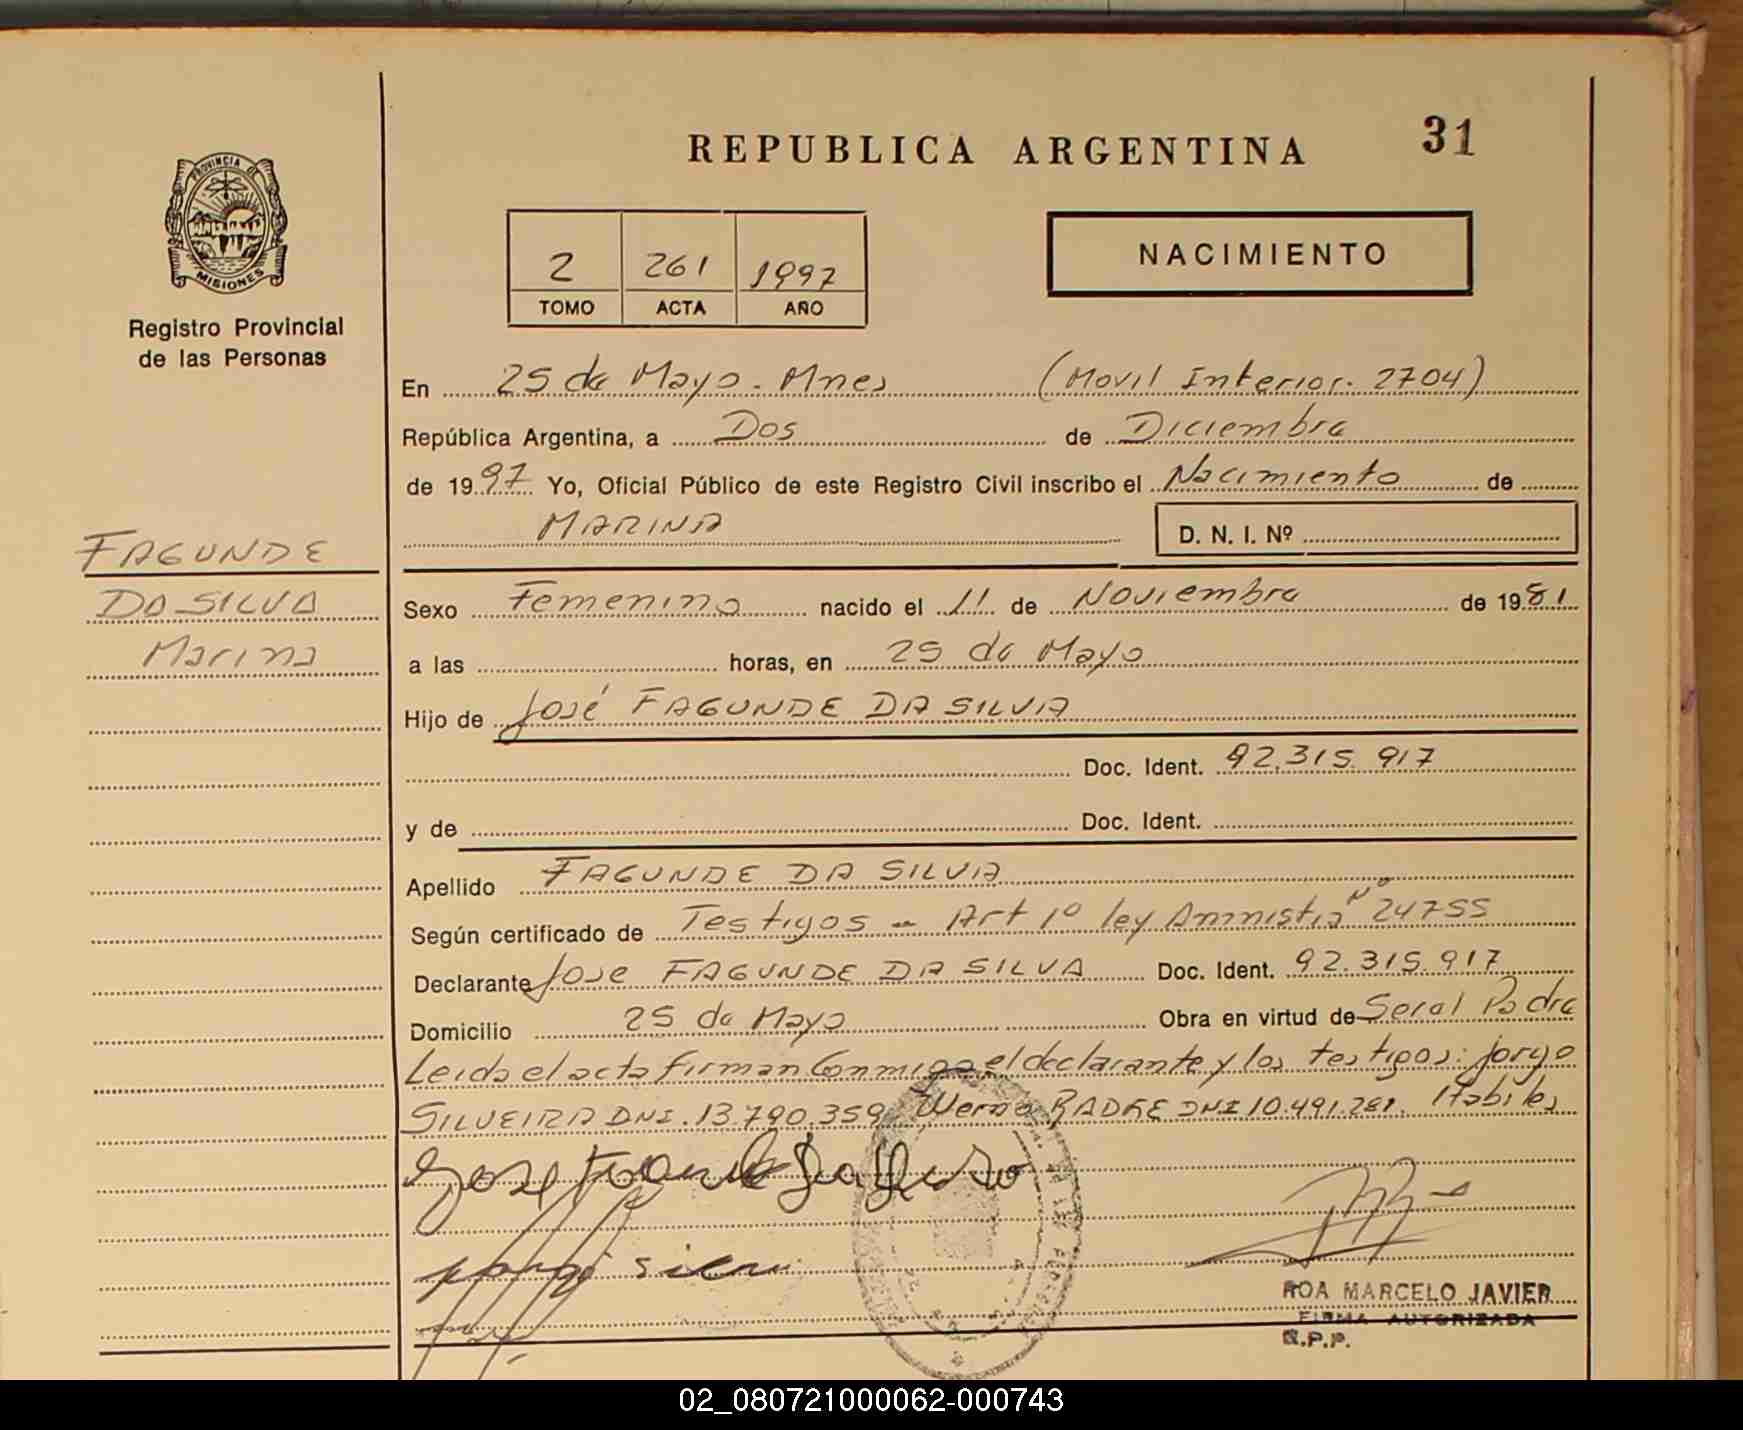 REPUBLICA ARGENTINA 31
PROVINCIA DE
MISIONES
Registro Provincial
de las Personas
2 261 1997
TOMO ACTA AÑO
NACIMIENTO
En 25 de Mayo. Mnes (Movil Interior. 2704)
República Argentina, a Dos de Diciembre
de 1997 Yo, Oficial Público de este Registro Civil inscribo el Nacimiento de
MARINA
D. N. I. Nº
FAGUNDE
DA SILVA
Marina
Sexo Femenino nacido el 11 de Noviembre de 1981
a las horas, en 25 de Mayo
Hijo de José FAGUNDE DA SILVIA
Doc. Ident. 92.315.917
y de Doc. Ident.
Apellido FAGUNDE DA SILVIA
Según certificado de Testigos - Art 1º ley Amnistia Nº 24755
Declarante Jose FAGUNDE DA SILVA Doc. Ident. 92.315.917
Domicilio 25 de Mayo Obra en virtud de Ser al Padre
Leida el acta firman Conmigo el declarante y los testigos: Jorge
SILVEIRA DNI. 13.790.359 Werno RADKE DNI 10.491.281. Habiles
ROA MARCELO JAVIER
FIRMA AUTORIZADA
R.P.P.
02_080721000062-000743